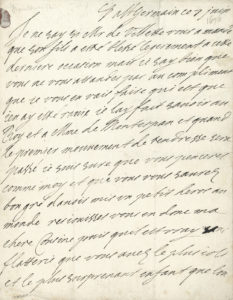 St Germain ce 7 juin
Je ne say sy Mr de Villette vous a mandé
que son fils a esté blessé legerement a cette
derniere occasion mais je say bien que
vous ne vous attendés pas au compliment
que je vous en vais faire qui est que
j'en ay esté ravie je l'ay fait savoir au
Roy et a Mme de Montespan et quand
le premier mouvement de tendresse sera
passé je suis sure que vous penserez
comme moy et que vous saurez
bon gré d'avoir mis un petit heros au
monde resjouissez vous en donc ma
chere Cousine puis qu'il est vray sans
flatterie que vous avez le plus joly
et le plus surprenant enfant que l'on